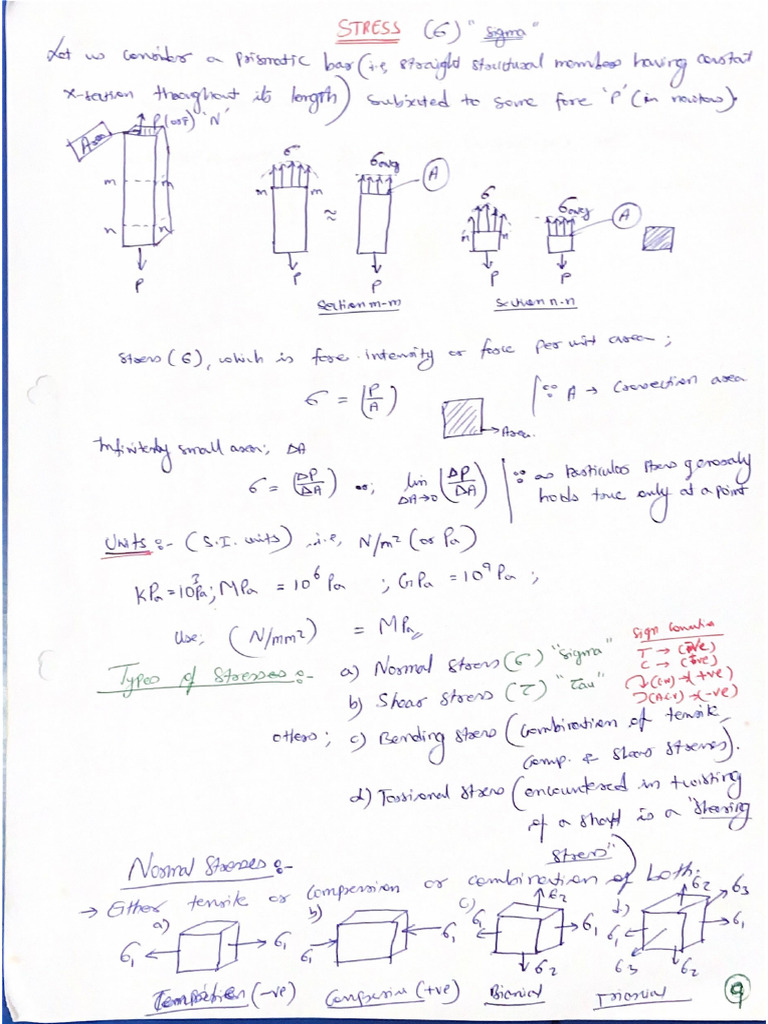 STRESS (σ) "sigma"
Let us consider a prismatic bar (i.e, straight structural members having constat
x-section throughout its length) subjected to some force 'P' (in newtons).
Area
P(or F) 'N'
m m
n n
P
σ
m m
P
≈
σavg
A
P
Section m-m
σ
n n
P
σavg
A
P
Section n-n
Stress (σ), which is force intensity or force per unit area ;
σ = (P/A)
∵ A → Crossection area
→ Area.
Infinitely small area; ΔA
σ = (ΔP/ΔA) or; lim ΔA→0 (ΔP/ΔA)
∵ as Particular stress generally
holds true only at a point
Units:- (S.I. units) i.e, N/m² (or Pa)
KPa = 10³Pa; MPa = 10⁶ Pa ; GPa = 10⁹ Pa ;
Use; (N/mm²) = MPa
Types of Stresses:- a) Normal Stress (σ) "sigma"
b) Shear stress (τ) "Tau"
Sign
T →
C →
(CW) → (+ve)
(ACW) → (-ve)
others ; c) Bending stress (combination of tensile,
comp. & shear stresses).
d) Torsional stress (encountered in twisting
of a shaft is a "shearing
stress")
Normal Stresses:-
→ Either tensile or compression or combination of both.
a) σ₁ σ₁
b) σ₁ σ₁
c) σ₁ σ₂ σ₁ σ₂
d) σ₂ σ₃ σ₁ σ₁ σ₃ σ₂
(-ve)
Compressive (+ve)
Biaxial
Triaxial
9